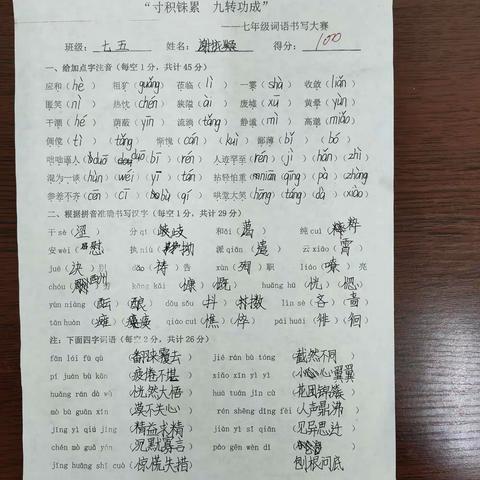 “寸积铢累 九转功成”
——七年级词语书写大赛
班级：七五 姓名： 得分：100
一、给加点字注音（每空1分，共计45分）
应和（hè） 粗犷（guǎng） 莅临（lì） 一霎（shà） 收敛（liǎn）
匿笑（nì） 热忱（chén） 狭隘（ài） 废墟（xū） 黄晕（yùn）
干涸（hé） 荫蔽（yīn） 流淌（tǎng） 静谧（mì） 高邈（miǎo）
倜傥（tì）（tǎng） 惭愧（cán）（kuì） 鄙薄（bǐ）（bó）
咄咄逼人（duō duō bī）（rén） 人迹罕至（rén）（jì）（hǎn）（zhì）
混为一谈（hùn）（wéi）（yī）（tán） 拈轻怕重（niān）（qīng）（pà）（zhòng）
参差不齐（cēn）（cī）（bù）（qí） 哄堂大笑（hōng）（táng）（dà）（xiào）
二、根据拼音准确书写汉字（每空1分，共计29分）
干sè（涩） 分qí（歧） 和ǎi（蔼） 纯cuì（粹）
安wèi（慰） 执niù（拗） 派qiǎn（遣） 云xiāo（霄）
jué（决）别 dǎo（祷）告 xùn（殉）职 liáo（嘹）亮
chóu（酬） kāng kǎi（慷）（慨） huǎng hū（恍）（惚）
yùn niàng（酝）（酿） dǒu sǒu（抖）（擞） lìn sè（吝）（啬）
tān huàn（瘫）（痪） qiáo cuì（憔）（悴） pái huái（徘）（徊）
注：下面四字词语（每空2分，共计26分）
fān lái fù qù（翻来覆去） jié rán bù tóng（截然不同）
pí juàn bù kān（疲倦不堪） xiǎo xīn yì yì（小心翼翼）
huǎng rán dà wù（恍然大悟） huā tuán jǐn cù（花团锦簇）
mò bù guān xīn（漠不关心） rén shēng dǐng fèi（人声鼎沸）
jīng yì qiú jīng（精益求精） jiàn yì sī qiān（见异思迁）
chén mò guǎ yán（沉默寡言） páo gēn wèn dǐ
jīng huāng shī cuò（惊慌失措） 刨根问底